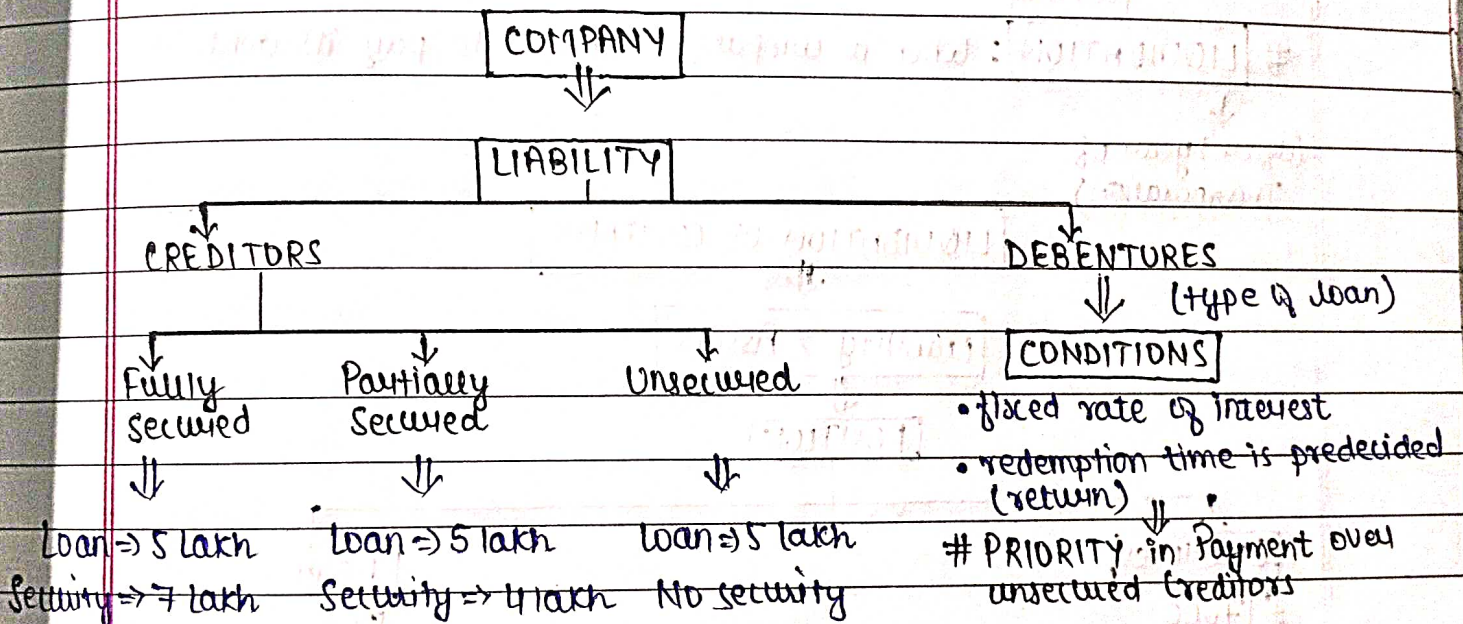 COMPANY
LIABILITY
CREDITORS
DEBENTURES
(type of loan)
Fully
secured
Partially
secured
Unsecured
CONDITIONS
• fixed rate of interest
• redemption time is predecided
(return)
Loan => 5 Lakh
Security => 7 Lakh
Loan => 5 lakh
Security => 4 lakh
Loan => 5 lakh
No security
# PRIORITY in Payment over
unsecured Creditors